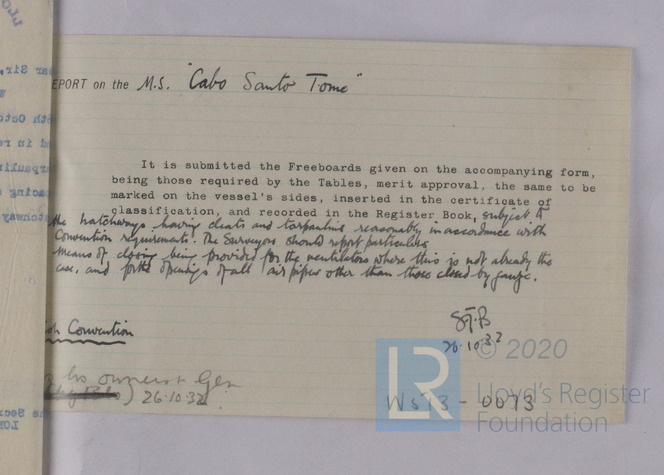 EPORT on the M.S. "Cabo Santo Tome"
It is submitted the Freeboards given on the accompanying form,
being those required by the Tables, merit approval, the same to be
marked on the vessel's sides, inserted in the certificate of
classification, and recorded in the Register Book, subject to
the hatchways having cleats and tarpaulins reasonably in accordance with
Convention requirements. The Surveyors should report particulars
means of closing being provided for the ventilators where this is not already the
case, and for the openings of all air pipes other than those closed by gauze.
Convention
26.10.32
owners + Glen
26.10.32
W513-0073
© 2020
LR
Lloyd's Register
Foundation